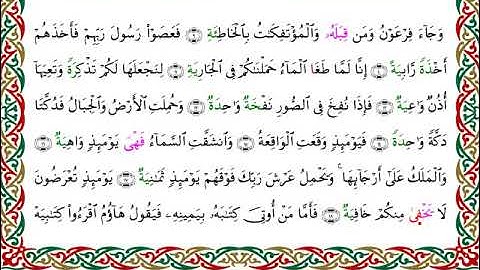 وَجَآءَ فِرْعَوْنُ وَمَن قِبَلَهُۥ وَٱلْمُؤْتَفِكَٰتُ بِٱلْخَاطِئَةِ فَعَصَوْا۟ رَسُولَ رَبِّهِمْ فَأَخَذَهُمْ
أَخْذَةً رَّابِيَةً إِنَّا لَمَّا طَغَا ٱلْمَآءُ حَمَلْنَٰكُمْ فِى ٱلْجَارِيَةِ لِنَجْعَلَهَا لَكُمْ تَذْكِرَةً وَتَعِيَهَآ
أُذُنٌ وَٰعِيَةٌ فَإِذَا نُفِخَ فِى ٱلصُّورِ نَفْخَةٌ وَٰحِدَةٌ وَحُمِلَتِ ٱلْأَرْضُ وَٱلْجِبَالُ فَدُكَّتَا
دَكَّةً وَٰحِدَةً فَيَوْمَئِذٍ وَقَعَتِ ٱلْوَاقِعَةُ وَٱنشَقَّتِ ٱلسَّمَآءُ فَهْىَ يَوْمَئِذٍ وَاهِيَةٌ
وَٱلْمَلَكُ عَلَىٰٓ أَرْجَآئِهَا ۚ وَيَحْمِلُ عَرْشَ رَبِّكَ فَوْقَهُمْ يَوْمَئِذٍ ثَمَٰنِيَةٌ يَوْمَئِذٍ تُعْرَضُونَ
لَا يَخْفَىٰ مِنكُمْ خَافِيَةٌ فَأَمَّا مَنْ أُوتِىَ كِتَٰبَهُۥ بِيَمِينِهِۦ فَيَقُولُ هَآؤُمُ ٱقْرَءُوا۟ كِتَٰبِيَهْ